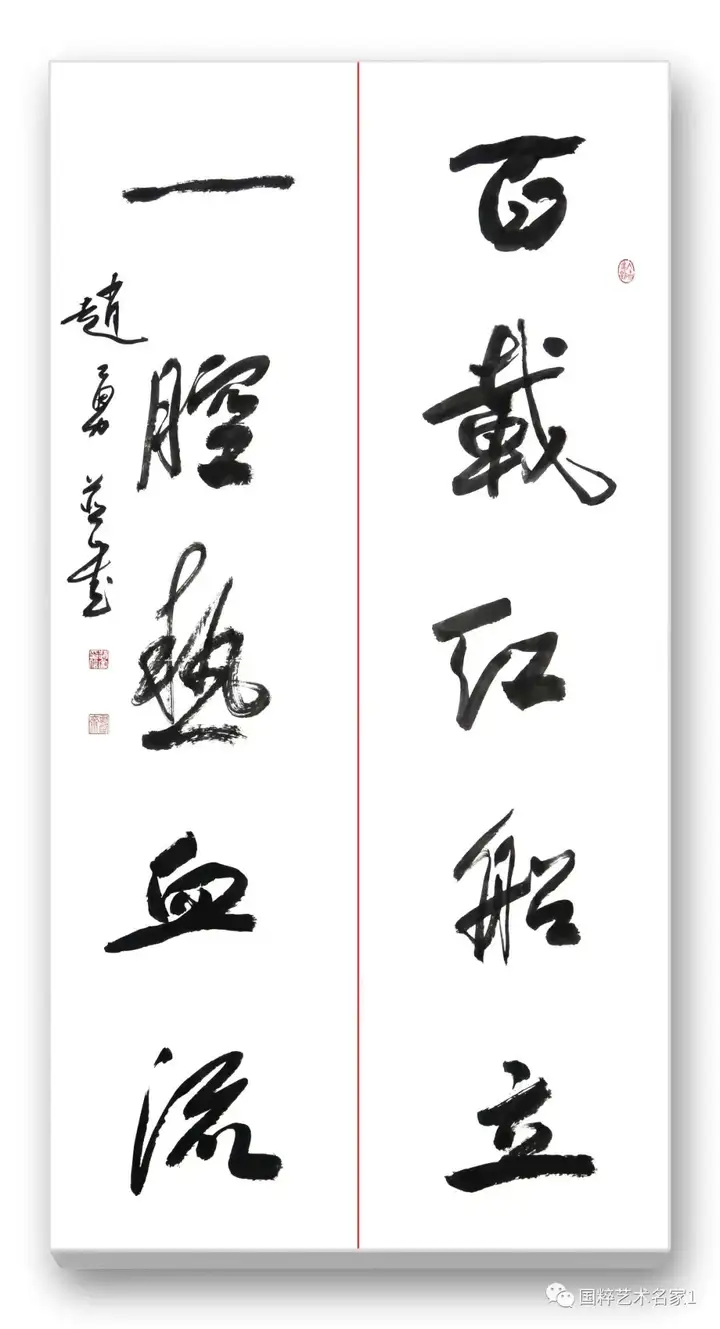 百載红船立
一腔熱血流
趙勇
国粹艺术名家1